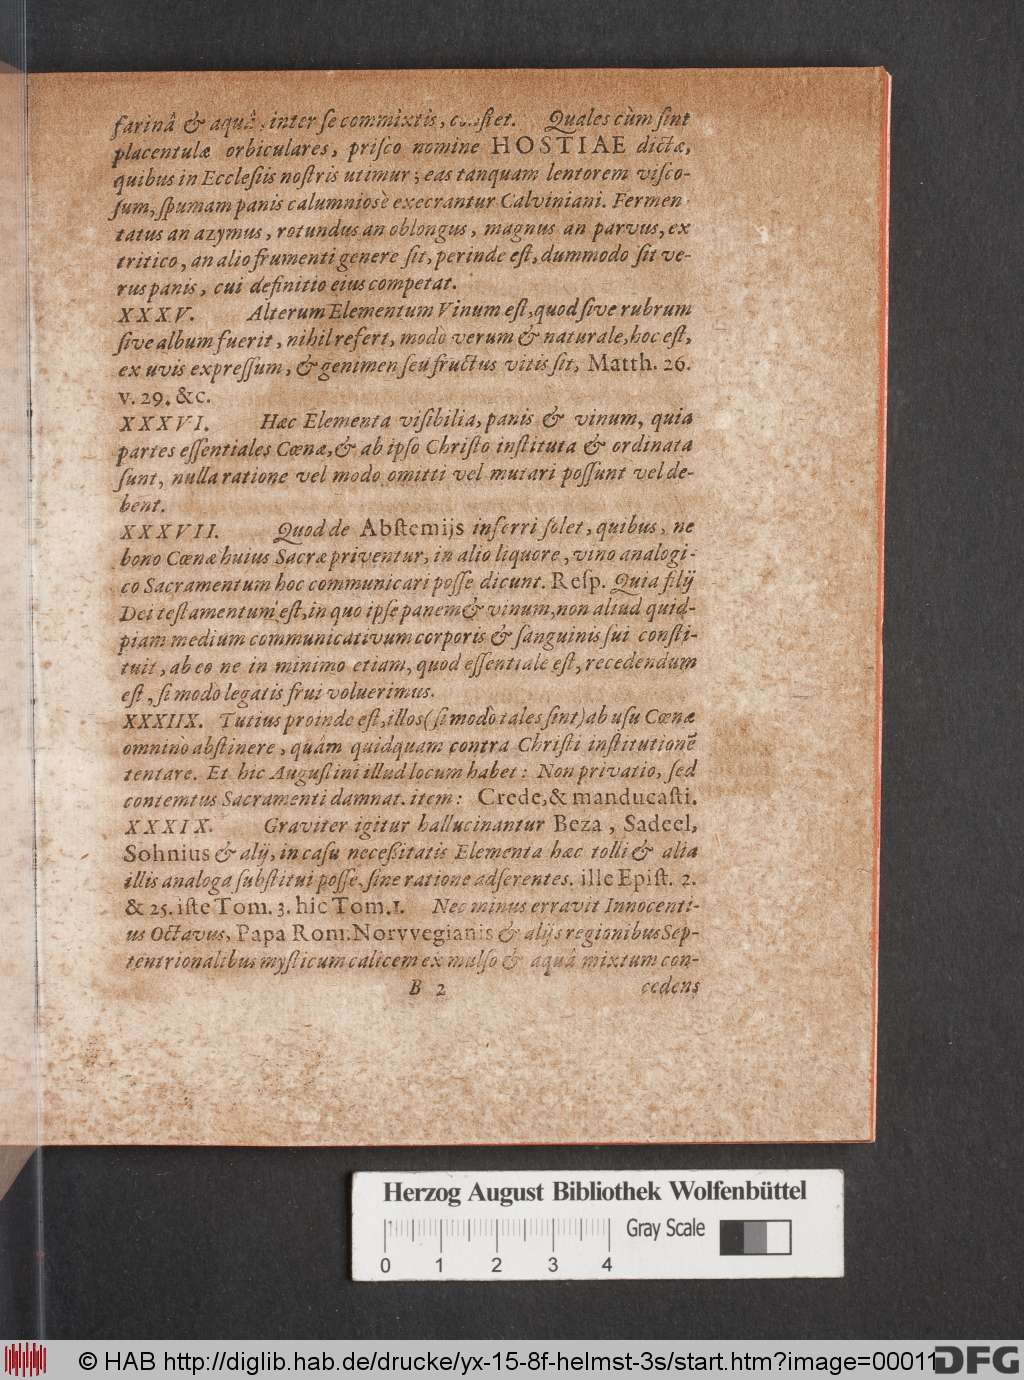 farinâ & aquâ, inter se commixtis, constet. Quales cùm sint
placentulæ orbiculares, prisco nomine HOSTIAE dictæ,
quibus in Ecclesiis nostris utimur; eas tanquam lentorem visco-
sum, spumam panis calumniosè execrantur Calviniani. Fermen-
tatus an azymus, rotundus an oblongus, magnus an parvus, ex
tritico, an alio frumenti genere sit, perinde est, dummodo sit ve-
rus panis, cui definitio eius competat.
XXXV. Alterum Elementum Vinum est, quod sive rubrum
sive album fuerit, nihil refert, modò verum & naturale, hoc est,
ex uvis expressum, & genimen seu fructus vitis sit, Matth. 26.
v. 29. &c.
XXXVI. Hæc Elementa visibilia, panis & vinum, quia
partes essentiales Cœnæ, & ab ipso Christo instituta & ordinata
sunt, nulla ratione vel modo omitti vel mutari possunt vel de-
bent.
XXXVII. Quod de Abstemijs inferri solet, quibus, ne
bono Cœnæ huius Sacræ priventur, in alio liquore, vino analogi-
co Sacramentum hoc communicari posse dicunt. Resp. Quia filij
Dei testamentum est, in quo ipse panem & vinum, non aliud quid-
piam medium communicativum corporis & sanguinis sui consti-
tuit, ab eo ne in minimo etiam, quod essentiale est, recedendum
est, si modò legatis frui voluerimus.
XXXIIX. Tutius proinde est, illos (si modò tales sint) ab usu Cœnæ
omninò abstinere, quám quidquam contra Christi institutionē
tentare. Et hic Augustini illud locum habet: Non privatio, sed
contemtus Sacramenti damnat. item: Crede, & manducasti.
XXXIX. Graviter igitur hallucinantur Beza, Sadeel,
Sohnius & alij, in casu necessitatis Elementa hæc tolli & alia
illis analoga substitui posse, sine ratione adserentes. ille Epist. 2.
& 25. iste Tom. 3. hic Tom. 1. Nec minus erravit Innocenti-
us Octavus, Papa Rom. Norvvegianis & alijs regionibus Sep-
tentrionalibus mysticum calicem ex mulso & aquâ mixtum con-
B 2 cedens
Herzog August Bibliothek Wolfenbüttel
Gray Scale
0 1 2 3 4
© HAB http://diglib.hab.de/drucke/yx-15-8f-helmst-3s/start.htm?image=00011
DFG